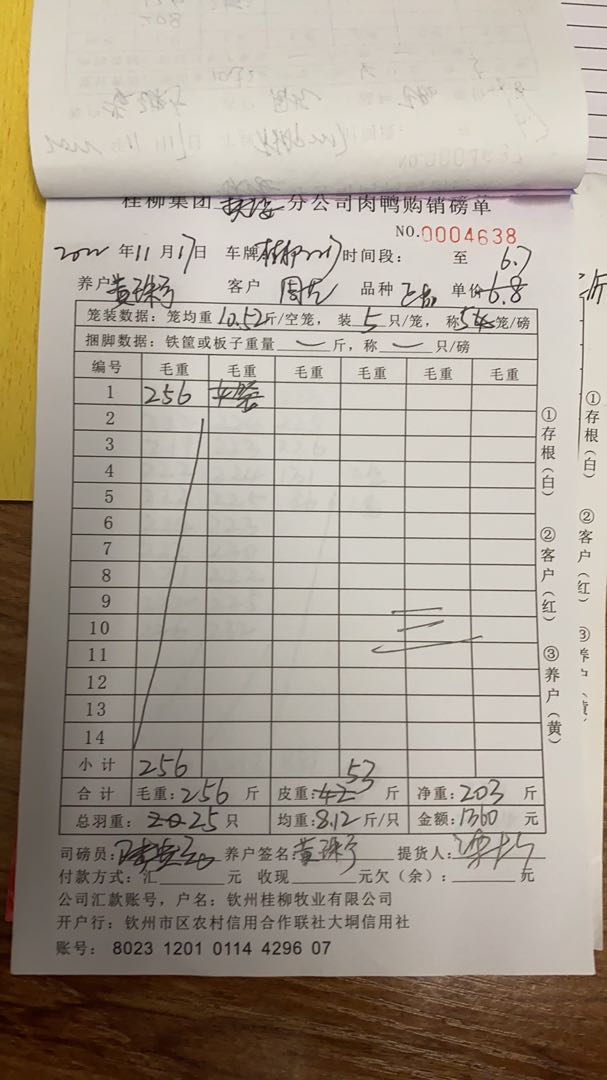 桂柳集团 分公司肉鸭购销磅单
NO.0004638
2022 年 11 月 17 日 车牌 时间段: 至 6.7
养户 黄 客户 周 品种 单价 6.8
笼装数据: 笼均重 10.52 斤/空笼, 装 5 只/笼, 称 5 笼/磅
捆脚数据: 铁筐或板子重量 斤, 称 只/磅
编号 毛重 毛重 毛重 毛重 毛重 毛重
1 256
2
3
4
5
6
7
8
9
10
11
12
13
14
小计 256
合计 毛重: 256 斤 皮重: 53 斤 净重: 203 斤
总羽重: 25 只 均重: 8.12 斤/只 金额: 1360 元
司磅员: 养户签名: 黄 提货人:
付款方式: 汇 元 收现 元欠(余): 元
公司汇款账号, 户名: 钦州桂柳牧业有限公司
开户行: 钦州市区农村信用合作联社大垌信用社
账号: 8023 1201 0114 4296 07
①存根(白)
②客户(红)
③养户(黄)
①存根(白)
②客户(红)